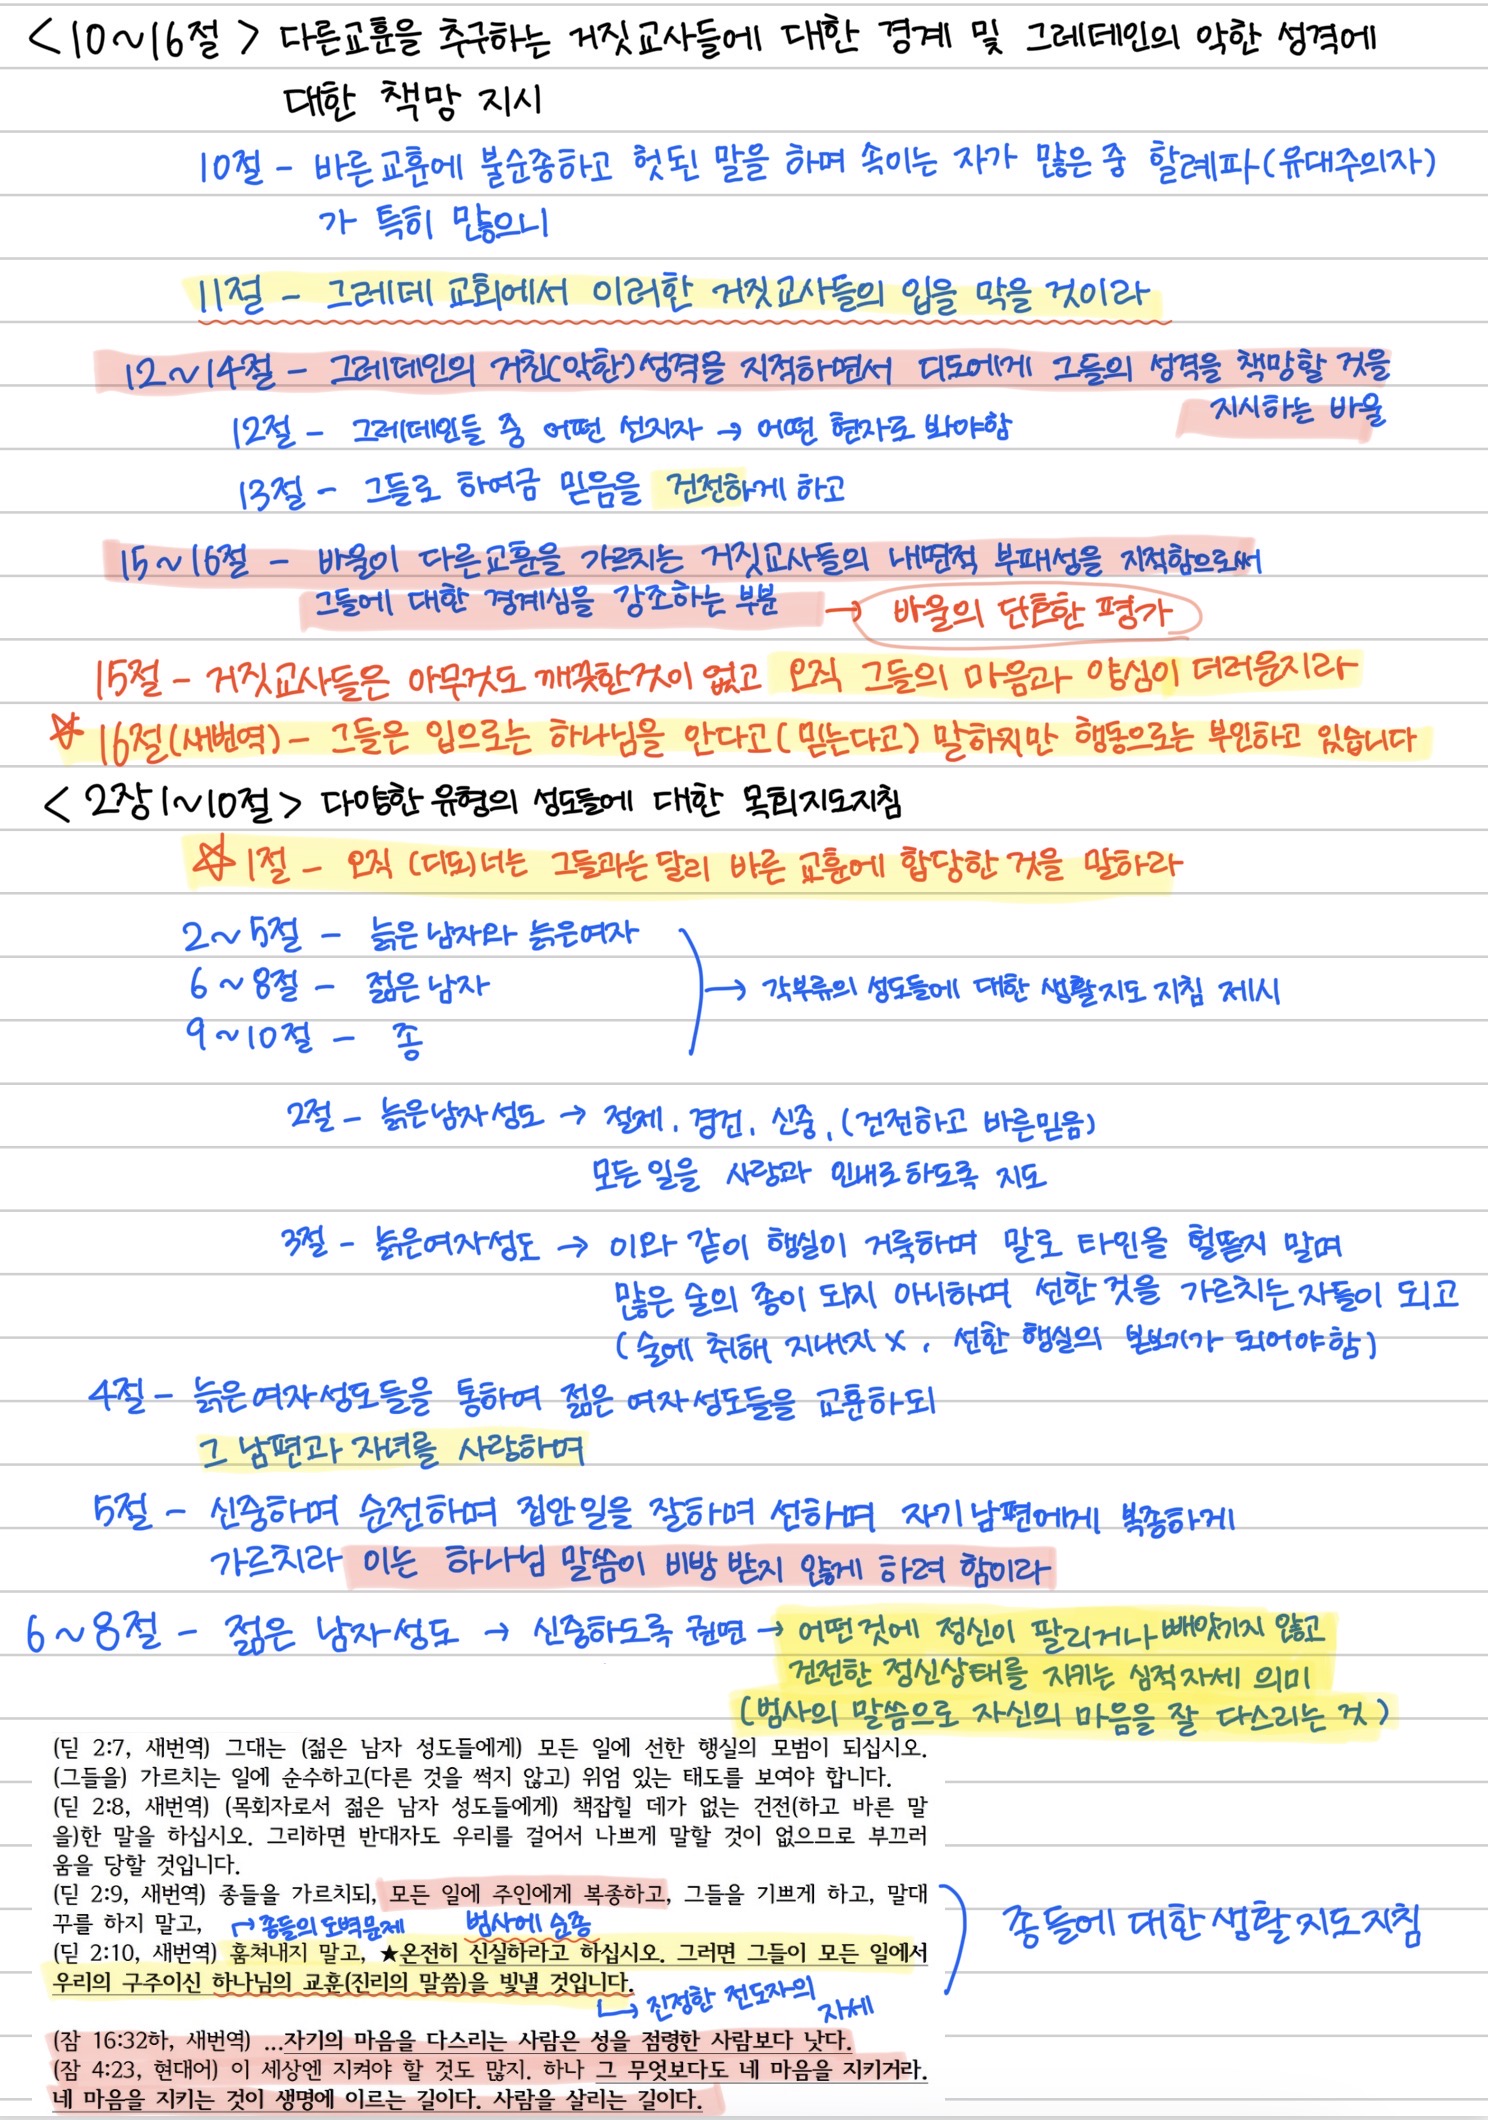 <10~16절> 다른교훈을 추구하는 거짓교사들에 대한 경계 및 그레데인의 악한 성격에
대한 책망 지시
10절 - 바른교훈에 불순종하고 헛된 말을 하며 속이는 자가 많은 중 할례파(유대주의자)
가 특히 많으니
11절 - 그레데 교회에서 이러한 거짓교사들의 입을 막을 것이라
12~14절 - 그레데인의 거친(악한)성격을 지적하면서 디도에게 그들의 성격을 책망할 것을
지시하는 바울
12절 - 그레데인들 중 어떤 선지자 → 어떤 현자로 봐야함
13절 - 그들로 하여금 믿음을 건전하게 하고
15~16절 - 바울이 다른교훈을 가르치는 거짓교사들의 내면적 부패성을 지적함으로써
그들에 대한 경계심을 강조하는 부분 → 바울의 단호한 평가
15절 - 거짓교사들은 아무것도 깨끗한것이 없고 오직 그들의 마음과 양심이 더러운지라
☆ 16절(새번역) - 그들은 입으로는 하나님을 안다고(믿는다고) 말하지만 행동으로는 부인하고 있습니다
<2장1~10절> 다양한 유형의 성도들에 대한 목회지도지침
☆ 1절 - 오직 (디도)너는 그들과는달리 바른 교훈에 합당한 것을 말하라
2~5절 - 늙은남자와 늙은여자
6~8절 - 젊은남자 → 각부류의 성도들에 대한 생활지도 지침 제시
9~10절 - 종
2절 - 늙은남자성도 → 절제, 경건, 신중, (건전하고 바른믿음)
모든일을 사랑과 인내로하도록 지도
3절 - 늙은여자성도 → 이와 같이 행실이 거룩하며 말로 타인을 헐뜯지 말며
많은 술의 종이 되지 아니하며 선한 것을 가르치는자들이 되고
(술에 취해 지내지 X, 선한 행실의 본보기가 되어야함)
4절 - 늙은여자성도들을 통하여 젊은 여자성도들을 교훈하되
그 남편과 자녀를 사랑하며
5절 - 신중하며 순전하며 집안일을 잘하며 선하며 자기남편에게 복종하게
가르치라 이는 하나님 말씀이 비방 받지 않게 하려 함이라
6~8절 - 젊은 남자성도 → 신중하도록 권면 → 어떤것에 정신이 팔리거나 빼앗기지 않고
건전한 정신상태를 지키는 심적자세 의미
(범사의 말씀으로 자신의 마음을 잘 다스리는 것)
(딛 2:7, 새번역) 그대는 (젊은 남자 성도들에게) 모든 일에 선한 행실의 모범이 되십시오.
(그들을) 가르치는 일에 순수하고(다른 것을 썩지 않고) 위엄 있는 태도를 보여야 합니다.
(딛 2:8, 새번역) (목회자로서 젊은 남자 성도들에게) 책잡힐 데가 없는 건전(하고 바른 말
을)한 말을 하십시오. 그리하면 반대자도 우리를 걸어서 나쁘게 말할 것이 없으므로 부끄러
움을 당할 것입니다.
(딛 2:9, 새번역) 종들을 가르치되, 모든 일에 주인에게 복종하고, 그들을 기쁘게 하고, 말대
꾸를 하지 말고, → 종들의 도벽문제 범사에 순종
종들에 대한생활지도지침
(딛 2:10, 새번역) 훔쳐내지 말고, ★온전히 신실하라고 하십시오. 그러면 그들이 모든 일에서
우리의 구주이신 하나님의 교훈(진리의 말씀)을 빛낼 것입니다.
→ 진정한 전도자의 자세
(잠 16:32하, 새번역) …자기의 마음을 다스리는 사람은 성을 점령한 사람보다 낫다.
(잠 4:23, 현대어) 이 세상엔 지켜야 할 것도 많지. 하나 그 무엇보다도 네 마음을 지키거라.
네 마음을 지키는 것이 생명에 이르는 길이다. 사람을 살리는 길이다.